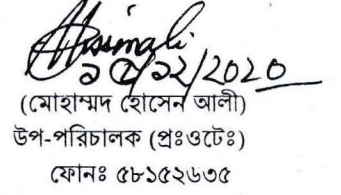 /১২/2020
(মোহাম্মদ হোসেন আলী)
উপ-পরিচালক (প্রঃওটেঃ)
ফোনঃ ৫৮১৫২৬৩৫